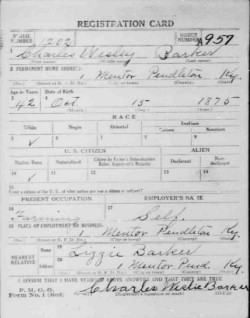 REGISTRATION CARD
SERIAL NUMBER 1262 ORDER NUMBER A957
Charles Wesley Barker
2 PERMANENT HOME ADDRESS:
1 Mentor Pendleton Ky.
Age in Years Date of Birth
42 Oct. 15 1875
RACE
White Negro Oriental Indian
Citizen Noncitizen
✓
U. S. CITIZEN ALIEN
Native Born Naturalized Citizen by Father's Naturalization Before Registrant's Majority Declarant Non-declarant
✓
PRESENT OCCUPATION EMPLOYER'S NAME
Farming Self.
PLACE OF EMPLOYMENT OR BUSINESS:
1 Mentor Pendleton Ky.
NEAREST RELATIVE Name Lizzie Barker
Address 1 Mentor Pend. Ky.
I AFFIRM THAT I HAVE VERIFIED ABOVE ANSWERS AND THAT THEY ARE TRUE
P. M. G. O.
Form No. 1 (Red) Charles Weslie Barker